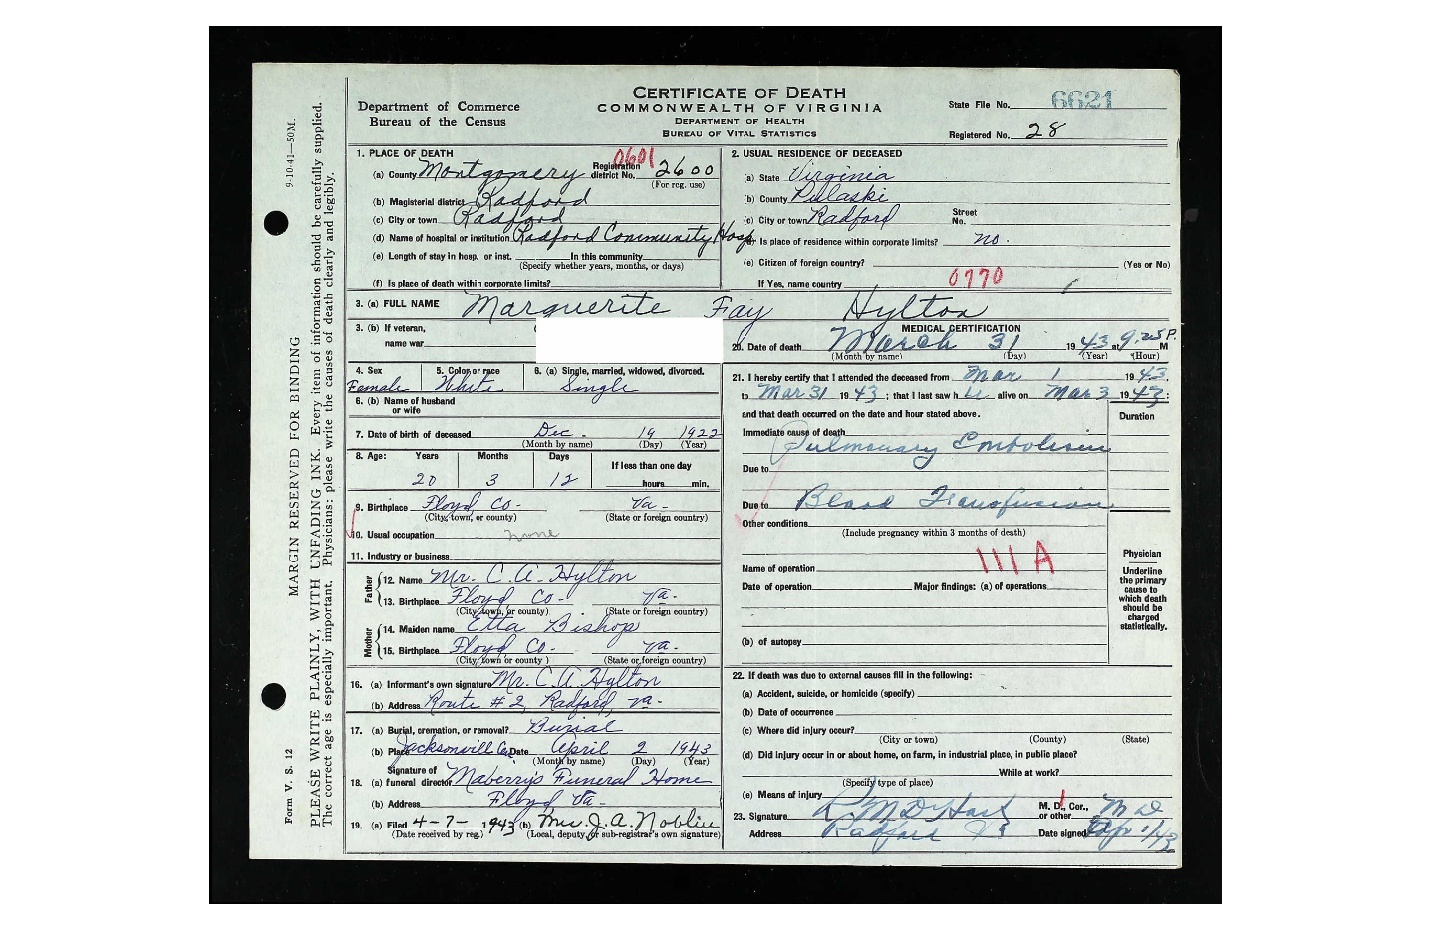 CERTIFICATE OF DEATH
COMMONWEALTH OF VIRGINIA
DEPARTMENT OF HEALTH
BUREAU OF VITAL STATISTICS
Department of Commerce
Bureau of the Census
State File No. 6621
Registered No. 28
9-10-41—50M.
MARGIN RESERVED FOR BINDING
PLEASE WRITE PLAINLY, WITH UNFADING INK. Every item of information should be carefully supplied.
The correct age is especially important. Physicians: please write the causes of death clearly and legibly.
Form V. S. 12
1. PLACE OF DEATH
0601
(a) County Montgomery Registration district No. 2600
(For reg. use)
(b) Magisterial district Radford
(c) City or town Radford
(d) Name of hospital or institution Radford Community Hosp
(e) Length of stay in hosp. or inst. In this community
(Specify whether years, months, or days)
(f) Is place of death within corporate limits?
2. USUAL RESIDENCE OF DECEASED
(a) State Virginia
(b) County Pulaski
(c) City or town Radford Street No.
(d) Is place of residence within corporate limits? no.
(e) Citizen of foreign country? (Yes or No)
If Yes, name country 0770
3. (a) FULL NAME Marguerite Fay Hylton
3. (b) If veteran,
name war
4. Sex 5. Color or race 6. (a) Single, married, widowed, divorced.
Female White Single
6. (b) Name of husband
or wife
7. Date of birth of deceased Dec. 19 1922
(Month by name) (Day) (Year)
8. Age: Years Months Days If less than one day
20 3 12 hours min.
9. Birthplace Floyd Co. Va.
(City, town, or county) (State or foreign country)
10. Usual occupation none
11. Industry or business
Father
12. Name Mr. C. A. Hylton
13. Birthplace Floyd Co. Va.
(City, town, or county) (State or foreign country)
Mother
14. Maiden name Etta Bishop
15. Birthplace Floyd Co. Va.
(City, town or county) (State or foreign country)
16. (a) Informant's own signature Mr. C. A. Hylton
(b) Address Route #2, Radford, Va.
17. (a) Burial, cremation, or removal? Burial
(b) Place Jacksonville Date April 2 1943
(Month by name) (Day) (Year)
18. (a) Signature of funeral director Maberry's Funeral Home
(b) Address Floyd Va.
19. (a) Filed 4-7-1943 (b) Mrs. J. A. Noblin
(Date received by reg.) (Local, deputy, or sub-registrar's own signature)
MEDICAL CERTIFICATION
20. Date of death March 31 1943 at 9:25 P. M
(Month by name) (Day) (Year) (Hour)
21. I hereby certify that I attended the deceased from Mar 1 1943
to Mar 31 1943; that I last saw h alive on Mar 3 1943:
and that death occurred on the date and hour stated above. Duration
Immediate cause of death
Pulmonary Embolism
Due to
Due to Blood Transfusion
Other conditions
(Include pregnancy within 3 months of death)
111 A
Name of operation
Date of operation Major findings: (a) of operations
(b) of autopsy
Physician
Underline
the primary
cause to
which death
should be
charged
statistically.
22. If death was due to external causes fill in the following:
(a) Accident, suicide, or homicide (specify)
(b) Date of occurrence
(c) Where did injury occur?
(City or town) (County) (State)
(d) Did injury occur in or about home, on farm, in industrial place, in public place?
While at work?
(Specify type of place)
(e) Means of injury
23. Signature M. D., Cor., or other M D
Address Radford Va Date signed Apr 1/43